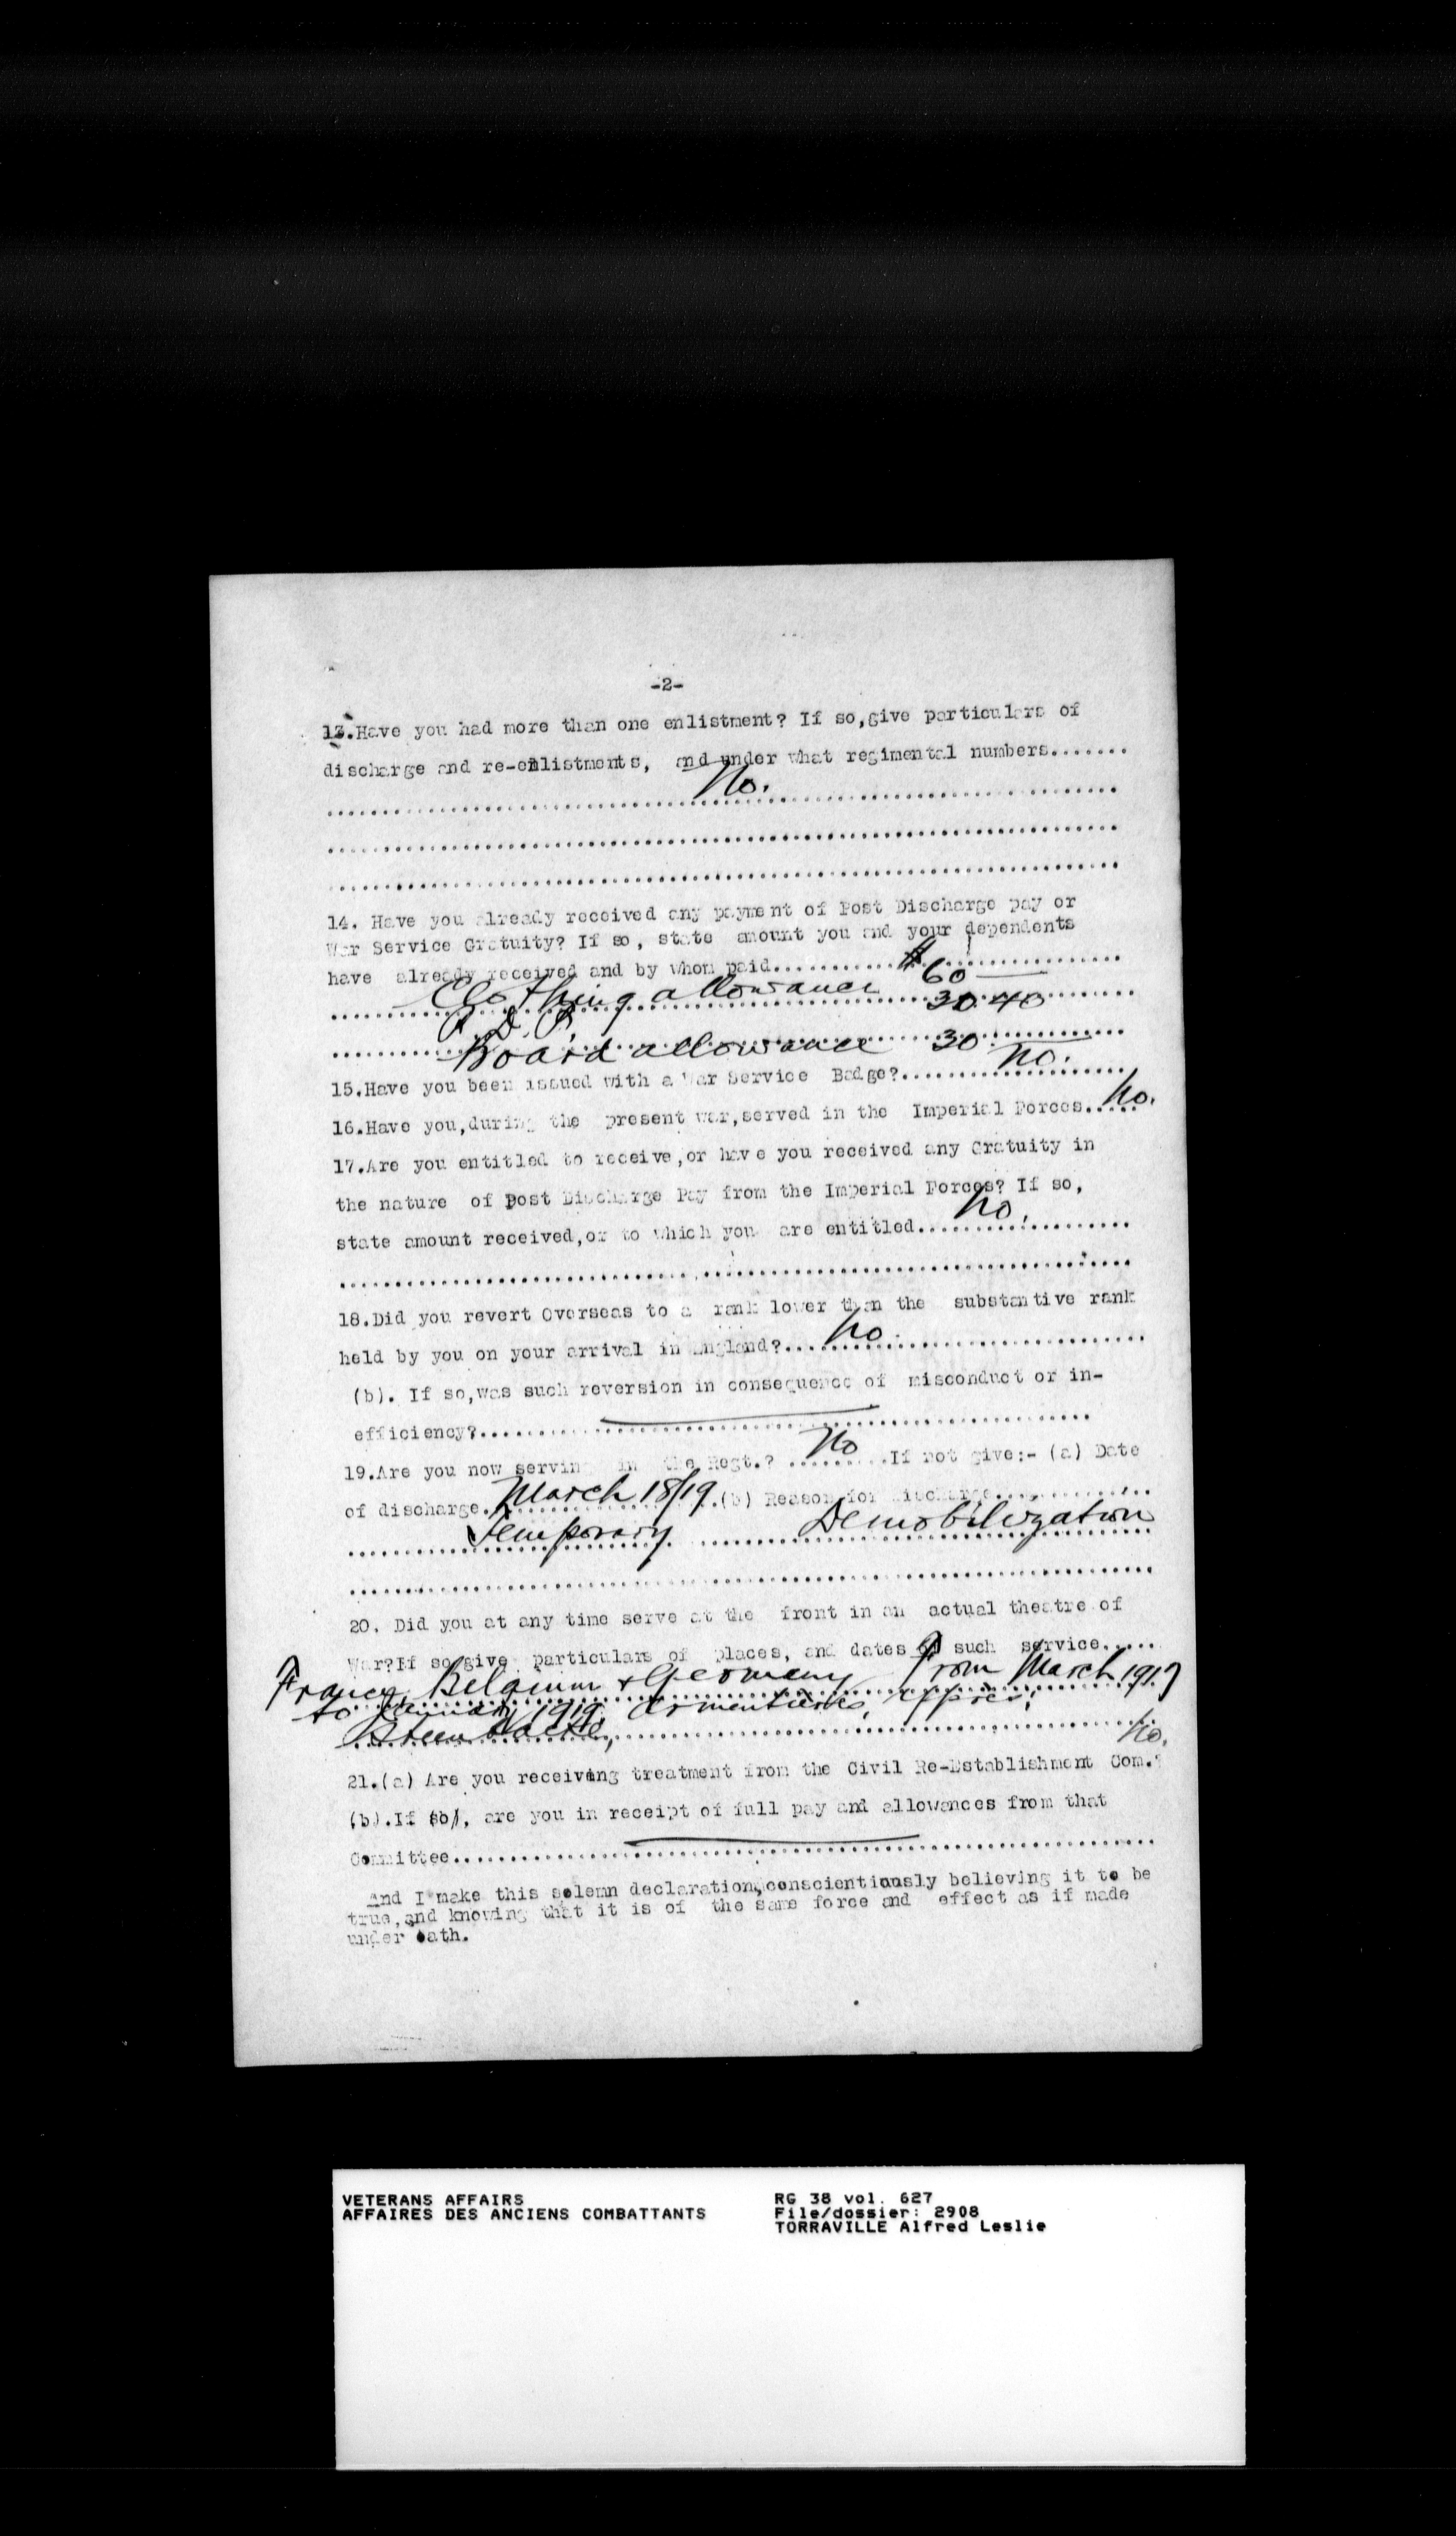 -2-
13.Have you had more than one enlistment? If so,give particulars of
discharge and re-enlistments, and under what regimental numbers.......
No.
14. Have you already received any payment of Post Discharge pay or
War Service Gratuity? If so, state amount you and your dependents
have already received and by whom paid............. $ 60
Clothing allowance
P. D. P. 30.40
Board allowance 30.
15.Have you been issued with a War Service Badge?.......... No.
16.Have you,during the present war,served in the Imperial Forces..... No.
17.Are you entitled to receive,or have you received any Gratuity in
the nature of Post Discharge Pay from the Imperial Forces? If so,
state amount received,or to which you are entitled.... No.
18.Did you revert Overseas to a rank lower than the substantive rank
held by you on your arrival in England?.... No.
(b). If so,was such reversion in consequence of misconduct or in-
efficiency?..........
19.Are you now serving in the Regt.? No .If not give:- (a) Date
of discharge. March 18/19.(b) Reason for discharge..............
Temporary Demobilization
20. Did you at any time serve at the front in an actual theatre of
War?If so,give particulars of places, and dates of such service.....
France, Belgium & Germany From March 1917
to January 1919. Armentieres,
No.
21.(a) Are you receiving treatment from the Civil Re-Establishment Com.?
(b).If so, are you in receipt of full pay and allowances from that
Committee..........
And I make this solemn declaration,conscientiously believing it to be
true,and knowing that it is of the same force and effect as if made
under oath.
VETERANS AFFAIRS RG 38 vol. 627
AFFAIRES DES ANCIENS COMBATTANTS File/dossier: 2908
TORRAVILLE Alfred Leslie